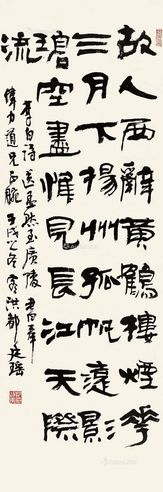 故人西辭黃鶴樓煙花
三月下揚州孤帆遠影
碧空盡惟見長江天際
流
李白詩送孟浩然至廣陵
偉力道兄正腕壬戌之冬客洪都